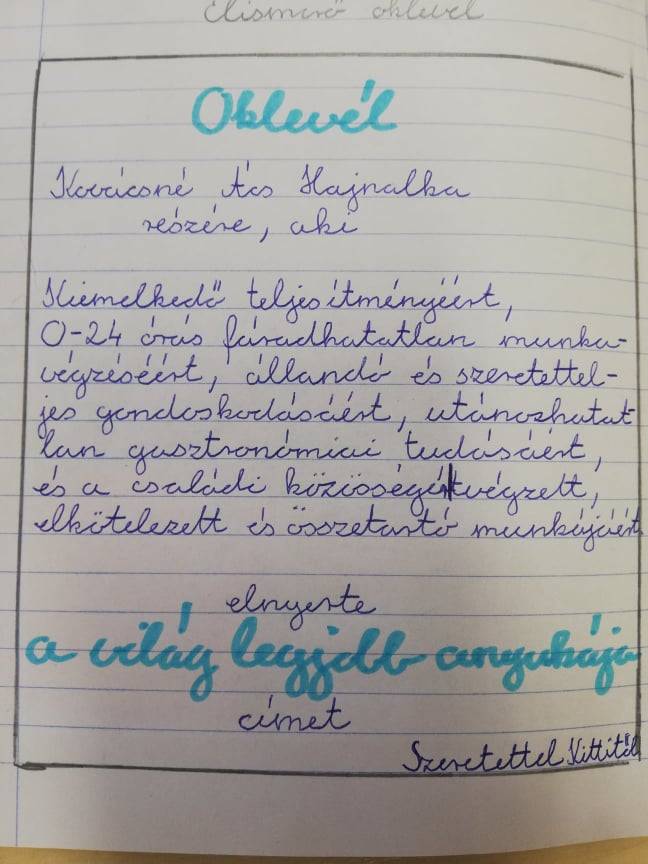 Elismerő oklevél
Oklevél
Kovácsné Ács Hajnalka
részére, aki
Kiemelkedő teljesítményéért,
0-24 órás fáradhatatlan munka-
végzéséért, állandó és szeretettel-
jes gondoskodásáért, utánozhatat
lan gasztronómiai tudásáért,
és a családi közösségért végzett,
elkötelezett és összetartó munkájáért
elnyerte
a világ legjobb anyukája
címet
Szeretettel Kittitől